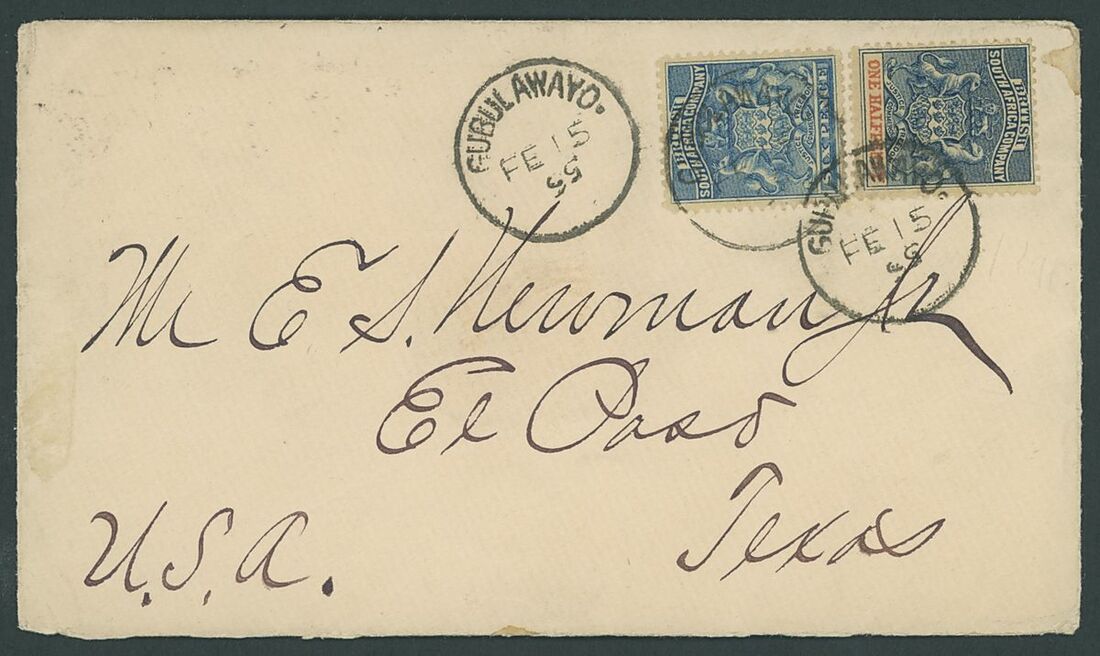 GUBULAWAYO.
FE 15
95
BRITISH
SOUTH AFRICA COMPANY
PENCE
BRITISH
SOUTH AFRICA COMPANY
ONE HALF
FE 15
Mr E S. Newman Jr
El Paso
Texas
U.S.A.